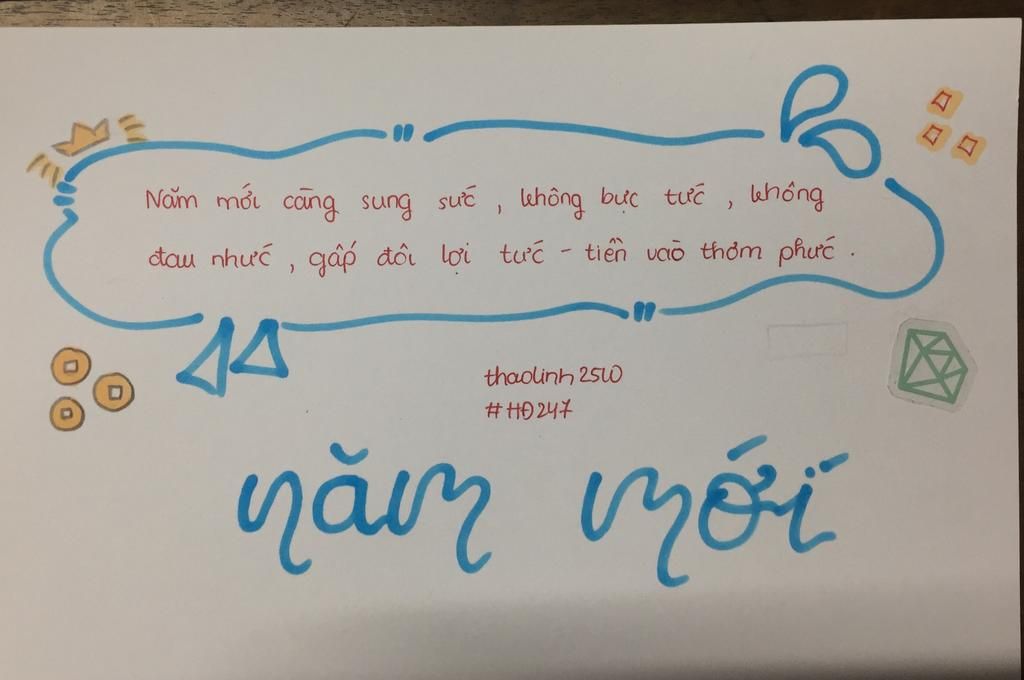 Năm mới càng sung sức, không bực tức, không
đau nhức, gấp đôi lợi tức - tiền vào thơm phức.
thaolinh2510
#HĐ247
năm mới